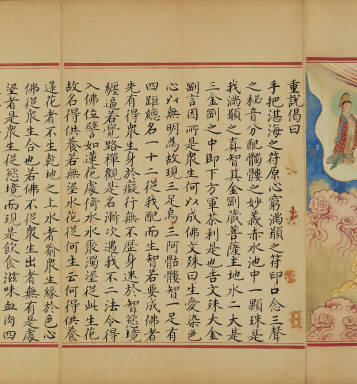 重說偈曰
手把湛海之符原心窮滿顙之符印口念三聲
之秘音分配髑髏之妙義赤水池中一顆珠是
我滿顙之真智其金剛藏菩薩主地水二大是
三金剛之中即下方軍荼利是也吉文殊大金
劉言因所是衆生何以成佛文殊曰生愛染色
心以無明為故現三足為三阿骷髏智一足有
四距總名一十二從我配而生智若要成佛者
先有得衆生身於癡行無不歷身迷於智慾境
纏逼若覺路禪觀是名漸次遇我不二法令得
入佛位譬如蓮花處倚水衆濁淫從此生花
故名得供養若無淫水花從何生云何得供養
蓮花者不生乾地之上水者喻衆生緣於色心
佛從衆生合也若佛不從衆生出者無有是處
淫者是衆生從慾境而現是飲食滋味血肉四